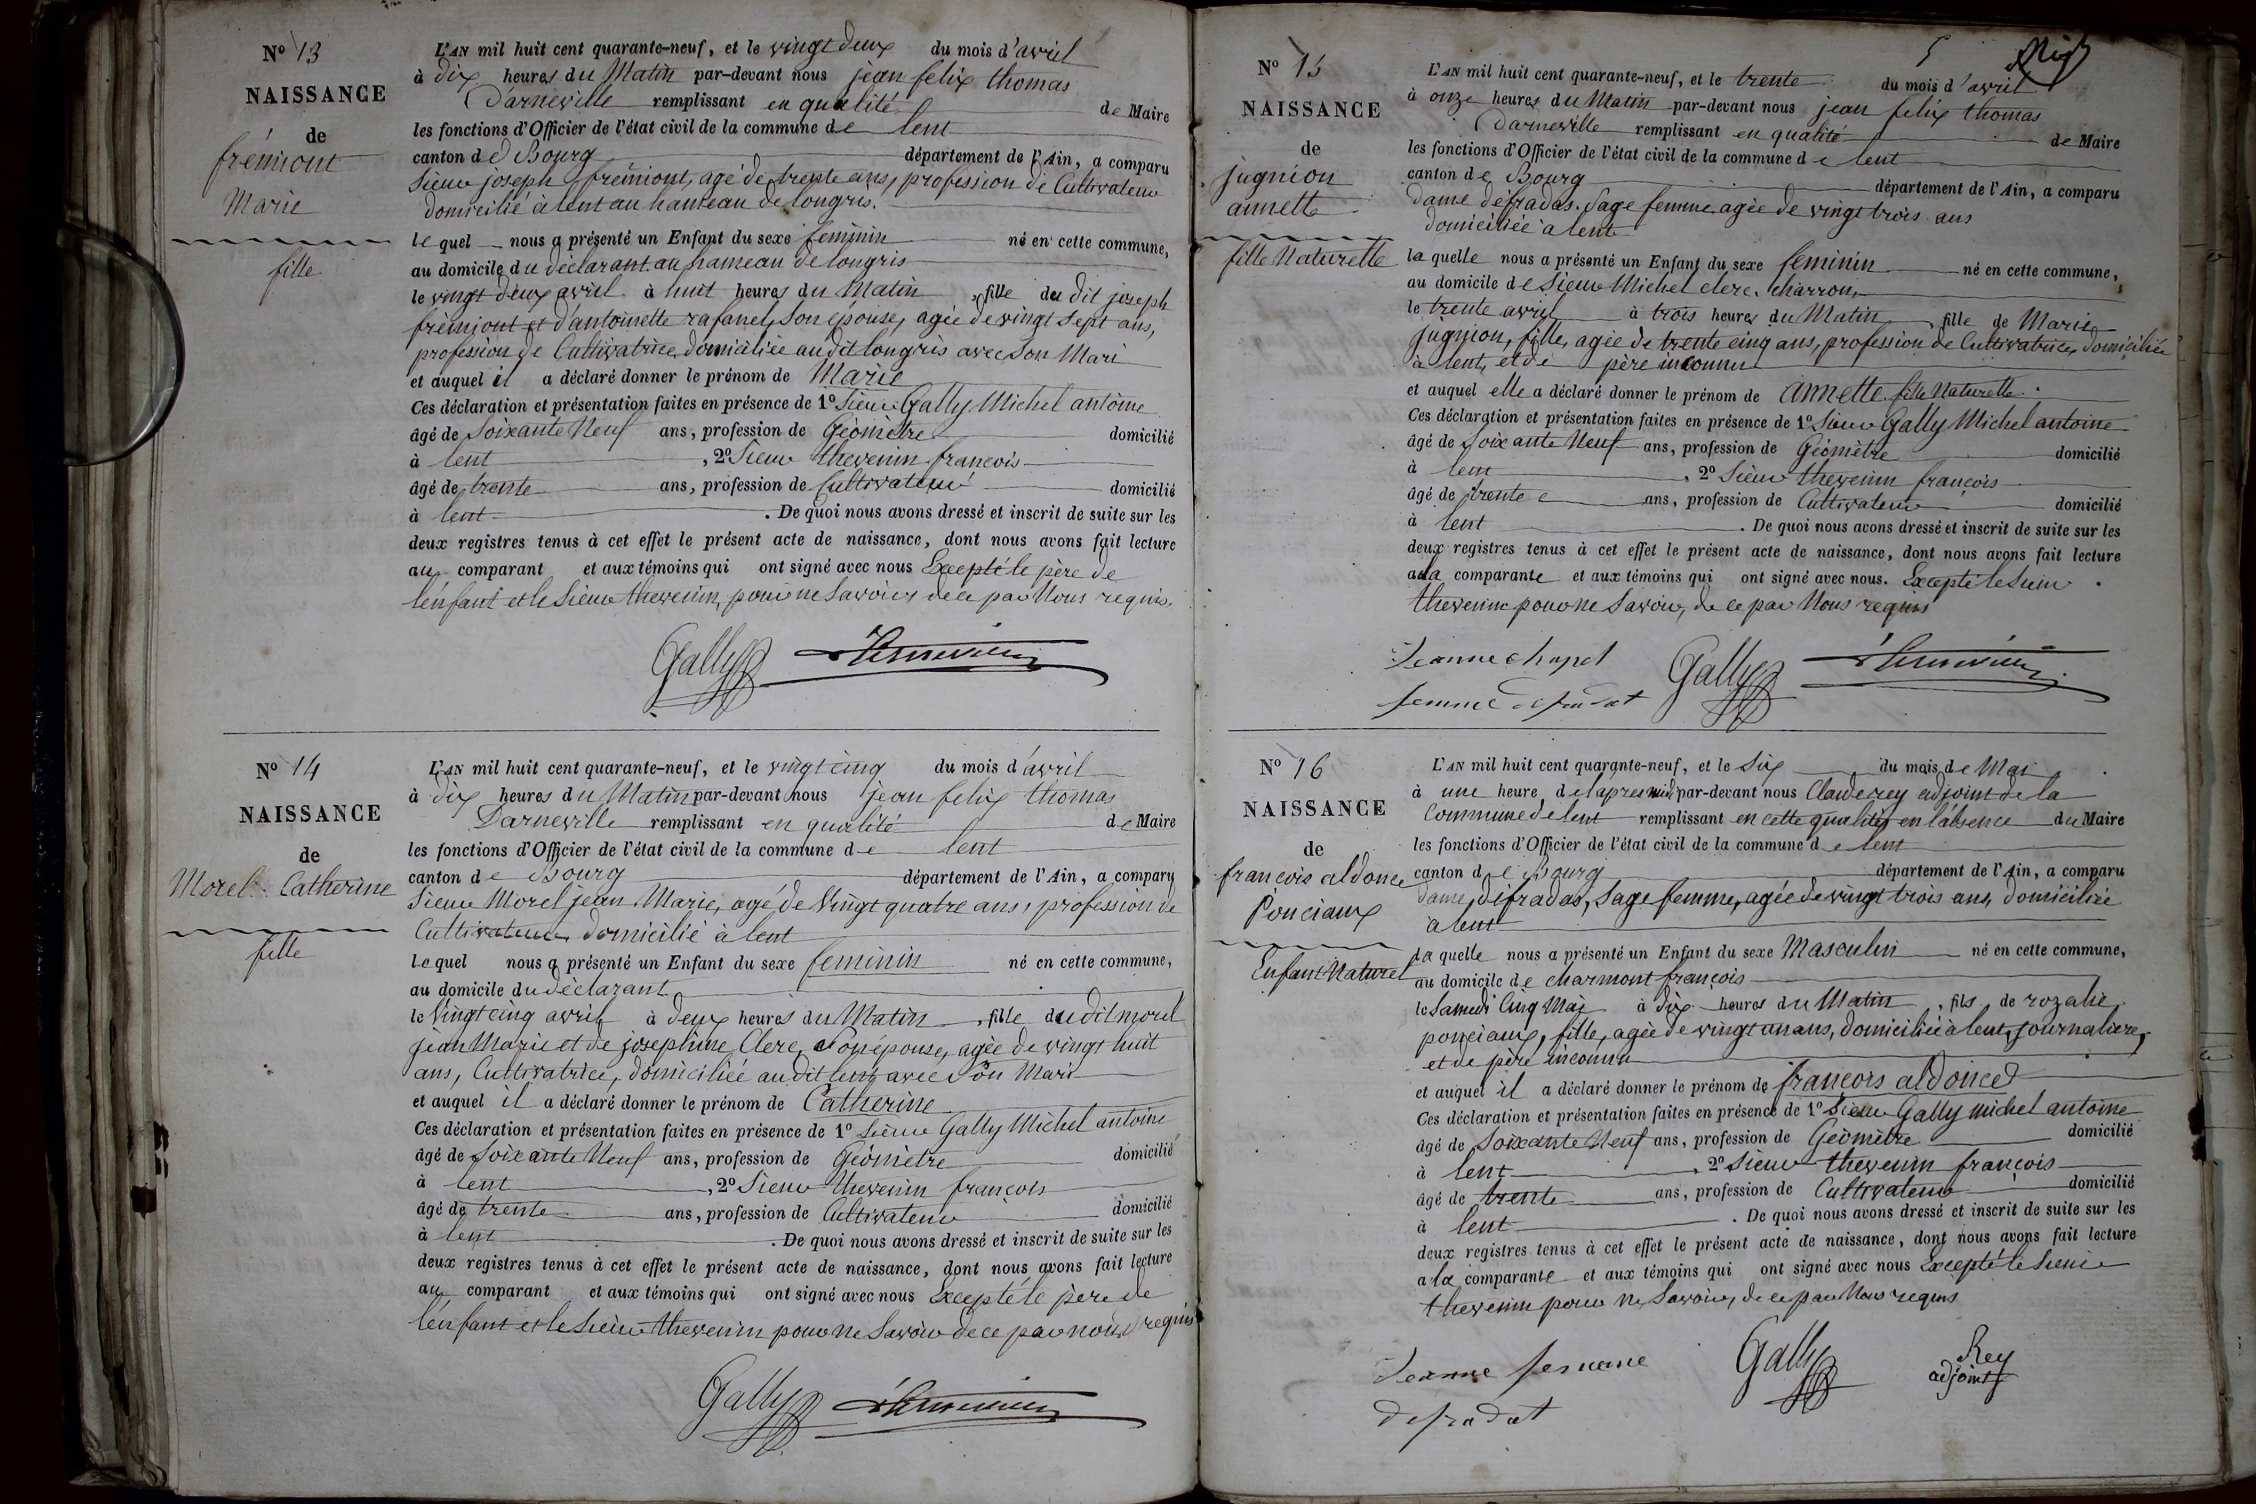 N° 13
NAISSANCE
de
frémiont
Marie
fille
L'AN mil huit cent quarante-neuf, et le vingt deux du mois d'avril
à dix heures du Matin par-devant nous jean felix thomas
D'arneville remplissant en qualité de Maire
les fonctions d'Officier de l'état civil de la commune de lent
canton de Bourg département de l'Ain, a comparu
Sieur joseph frémiont, agé de trente ans, profession de Cultivateur
domicilié à lent au hameau de longris.
lequel nous a présenté un Enfant du sexe feminin né en cette commune,
au domicile du déclarant au hameau de longris
le vingt deux avril à huit heures du Matin, fille du dit joseph
frémiont et d'antoinette rafanel, son epouse, agée de vingt sept ans,
profession de Cultivatrice, domiciliée au dit longris avec son Mari
et auquel il a déclaré donner le prénom de Marie
Ces déclaration et présentation faites en présence de 1° Sieur Gally Michel antoine
âgé de Soixante Neuf ans, profession de Géomètre domicilié
à lent, 2° Sieur thevenin françois
âgé de trente ans, profession de Cultivateur domicilié
à lent. De quoi nous avons dressé et inscrit de suite sur les
deux registres tenus à cet effet le présent acte de naissance, dont nous avons fait lecture
au comparant et aux témoins qui ont signé avec nous Excepté le père de
l'énfant et le Sieur thevenin, pour ne Savoir de ce par Nous requis.
Gally
N° 14
NAISSANCE
de
Morel Catherine
fille
L'AN mil huit cent quarante-neuf, et le vingt cinq du mois d'avril
à dix heures du Matin par-devant nous jean felix thomas
Darneville remplissant en qualité de Maire
les fonctions d'Officier de l'état civil de la commune de lent
canton de Bourg département de l'Ain, a comparu
Sieur Morel jean Marie, agé de Vingt quatre ans, profession de
Cultivateur, domicilié à lent
lequel nous a présenté un Enfant du sexe feminin né en cette commune,
au domicile du déclarant
le Vingt cinq avril à deux heures du Matin, fille du dit morel
jean Marie et de josephine Clerc, Son épouse, agée de vingt huit
ans, Cultivatrice, domiciliée au dit lent avec Son Mari
et auquel il a déclaré donner le prénom de Catherine
Ces déclaration et présentation faites en présence de 1° Sieur Gally Michel antoine
âgé de Soixante Neuf ans, profession de Géomètre domicilié
à lent, 2° Sieur thevenin françois
âgé de trente ans, profession de Cultivateur domicilié
à lent. De quoi nous avons dressé et inscrit de suite sur les
deux registres tenus à cet effet le présent acte de naissance, dont nous avons fait lecture
au comparant et aux témoins qui ont signé avec nous Excepté le père de
l'énfant et le Sieur thevenin pour ne Savoir de ce par nous requis
Gally
5
N° 15
NAISSANCE
de
jugnion
annette
fille Naturelle
L'AN mil huit cent quarante-neuf, et le trente du mois d'avril
à onze heures du Matin par-devant nous jean felix thomas
Darneville remplissant en qualité de Maire
les fonctions d'Officier de l'état civil de la commune de lent
canton de Bourg département de l'Ain, a comparu
dame défradas. Sage femme, agée de vingt trois ans
domiciliée à lent
laquelle nous a présenté un Enfant du sexe feminin né en cette commune,
au domicile de Sieur Michel clerc, charron,
le trente avril à trois heures du Matin, fille de Marie
jugnion, fille, agée de trente cinq ans, profession de Cultivatrice, domiciliée
à lent, et de père inconnu
et auquel elle a déclaré donner le prénom de annette fille Naturelle.
Ces déclaration et présentation faites en présence de 1° Sieur Gally Michel antoine
âgé de Soixante Neuf ans, profession de Géomètre domicilié
à lent, 2° Sieur thevenin françois
âgé de trente ans, profession de Cultivateur domicilié
à lent. De quoi nous avons dressé et inscrit de suite sur les
deux registres tenus à cet effet le présent acte de naissance, dont nous avons fait lecture
a la comparante et aux témoins qui ont signé avec nous. Excepté le Sieur
thevenin pour ne Savoir, de ce par Nous requis
Jeanne chapel
femme defradat
Gally
N° 16
NAISSANCE
de
francois aldonce
Ponciaux
Enfant Naturel
L'AN mil huit cent quarante-neuf, et le Six du mois de Mai
à une heure del'apres midi par-devant nous Claude rey adjoint de la
Commune de lent remplissant en cette qualité, en l'absence du Maire
les fonctions d'Officier de l'état civil de la commune de lent
canton de Bourg département de l'Ain, a comparu
dame, défradas, Sage femme, agée de vingt trois ans, domiciliée
à lent
laquelle nous a présenté un Enfant du sexe Masculin né en cette commune,
au domicile de charmont françois
le Samedi Cinq Mai à dix heures du Matin, fils de rozalie
ponciaux, fille, agée de vingt un ans, domiciliée à lent, journaliere,
et de père inconnu
et auquel il a déclaré donner le prénom de francois aldonce
Ces déclaration et présentation faites en présence de 1° Sieur Gally michel antoine
âgé de Soixante Neuf ans, profession de Géomètre domicilié
à lent, 2° Sieur thevenin françois
âgé de trente ans, profession de Cultivateur domicilié
à lent. De quoi nous avons dressé et inscrit de suite sur les
deux registres tenus à cet effet le présent acte de naissance, dont nous avons fait lecture
a la comparante et aux témoins qui ont signé avec nous Excepté le Sieur
thevenin pour ne Savoir, de ce par Nous requis
Jeanne femme
defradat
Gally
Rey
adjoint